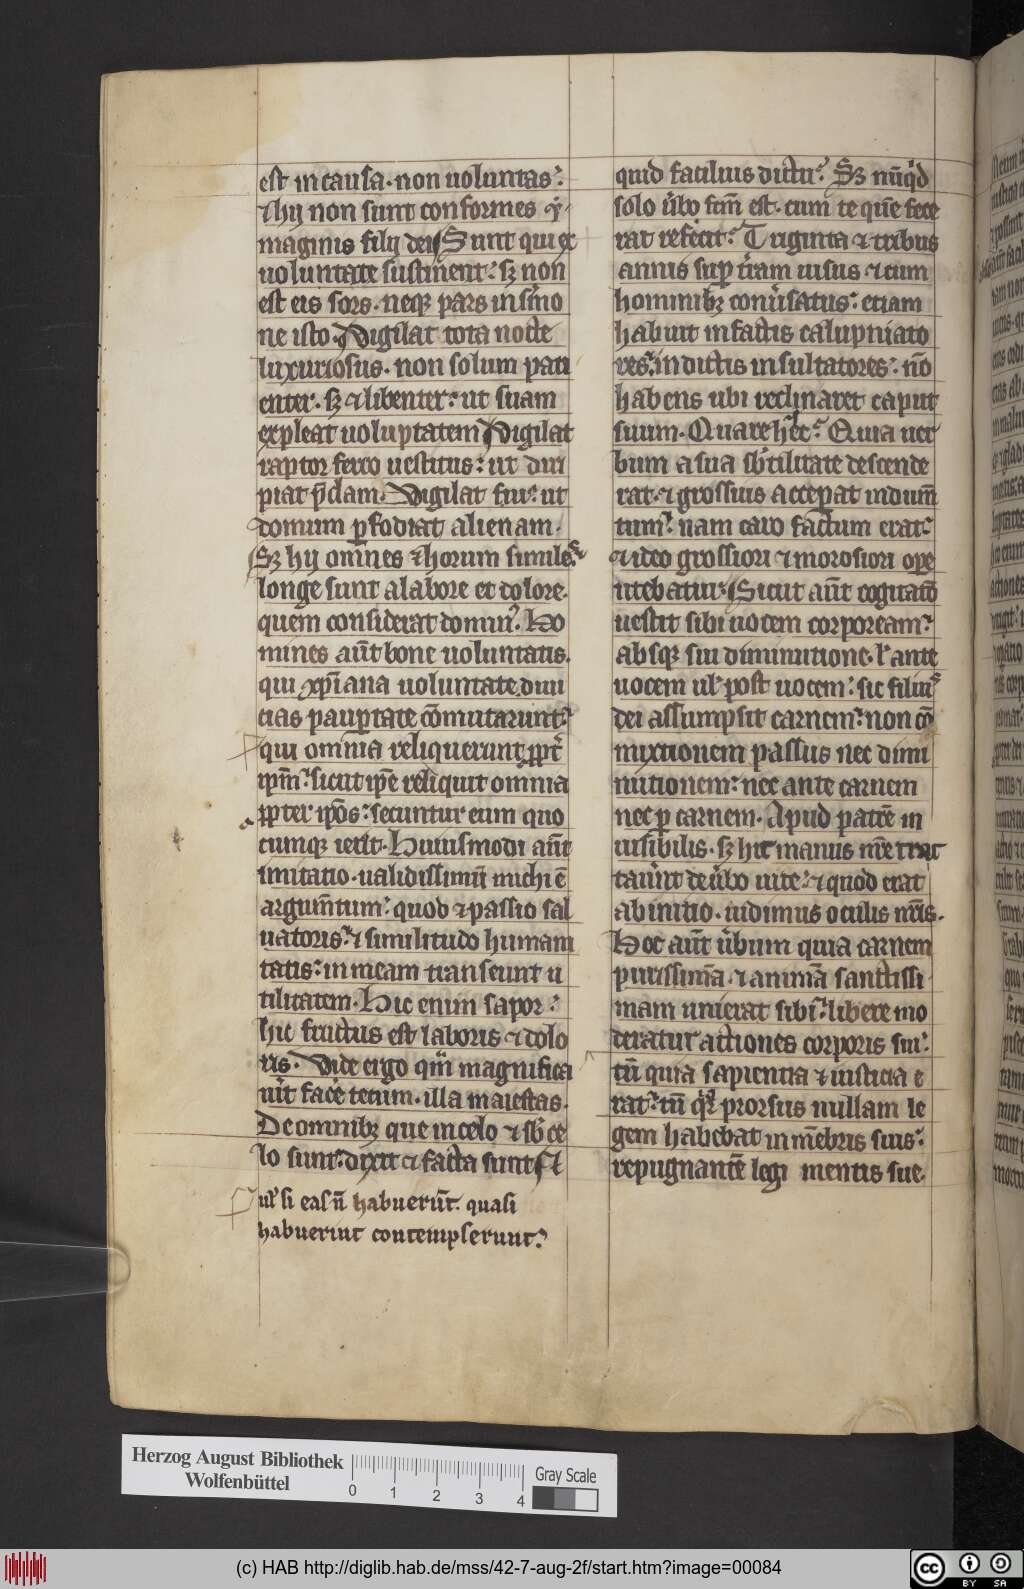 est in causa. non uoluntas.
⁊ hij non sunt conformes y
maginis filij dei Sunt qui ex
uoluntate sustinent. sȝ non
est eis sors. neqȝ pars in s̾mo
ne isto. Vigilat tota nocte
luxuriosus. non solum pati
enter. sȝ ⁊ libenter. ut suam
expleat uoluptatem Vigilat
raptor ferro uestitus. ut diri
piat p̄dam. Vigilat fur. ut
domum ꝑfodiat alienam.
Sȝ hij omnes ⁊ horum similes
longe sunt a labore et dolore.
quem considerat dominꝰ. Ho
mines aūt bone uoluntatis.
qui xp̄iana uoluntate diui
cias pauꝑtate cōmutarunt.
qui omnia reliquerunt ꝓpt̾
ip̄m. sicut ip̄e reliquit omnia
ꝓpter ip̄os. secuntur eum quo
cumqȝ ierit. Huiusmodi aūt
imitatio. ualidissimū michi ē
argum̄tum. quod ⁊ passio sal
uatoris. ⁊ similitudo humani
tatis. in meam transeunt u
tilitatem. Hic enim sapor.
hic fructus est laboris ⁊ dolo
ris. Vide ergo qm̄ magnifica
uit fac̾e tecum. illa maiestas.
De omnibȝ que in celo ⁊ sb̾ ce
lo sunt. dixit ⁊ facta sunt
ul̾ si eas n̄ habuerūt. quasi
habuerint contempserunt.
quid facilius dictu. Sȝ nūqͥd
solo u̾bo fcm̄ est. cum te quē fece
rat refecit. Triginta ⁊ tribus
annis suꝑ t̾ram uisus ⁊ cum
hominibȝ conu̾satus. etiam
habuit in factis calupniato
res. in dictis insultatores. nō
habens ubi reclinaret caput
suum. Quare hͦ c. Quia uer
bum a sua sb̾tilitate descende
rat. ⁊ grossius acceꝑat indum̄
tum. nam caro factum erat.
⁊ ideo grossiori ⁊ morosiori oꝑe
utebatur. Sicut aūt cogitatō
uestit sibi uocem corpoream.
absqȝ sui diminutione. ul̾ ante
uocem ul̾ post uocem. sic filiuꝰ
dei assumpsit carnem. non cō
mixtionem passus nec dimi
nutionem. nec ante carnem
nec ꝑ carnem. Apud patrē in
uisibilis. sȝ hic manus nr̄e trac
tauer̄t de u̾bo uite. ⁊ quod erat
ab initio. uidimus oculis nr̄is.
Hoc aūt u̾bum quia carnem
purissimā. ⁊ animā sanctissi
mam unierat sibi. libere mo
deratur actiones corporis sui.
tū quia sapientia ⁊ iusticia e
rat. tū qͥa prorsus nullam le
gem habebat in mēbris suis.
repugnantē legi mentis sue.
Herzog August Bibliothek
Wolfenbüttel
0 1 2 3 4
Gray Scale
(c) HAB http://diglib.hab.de/mss/42-7-aug-2f/start.htm?image=00084
cc BY SA